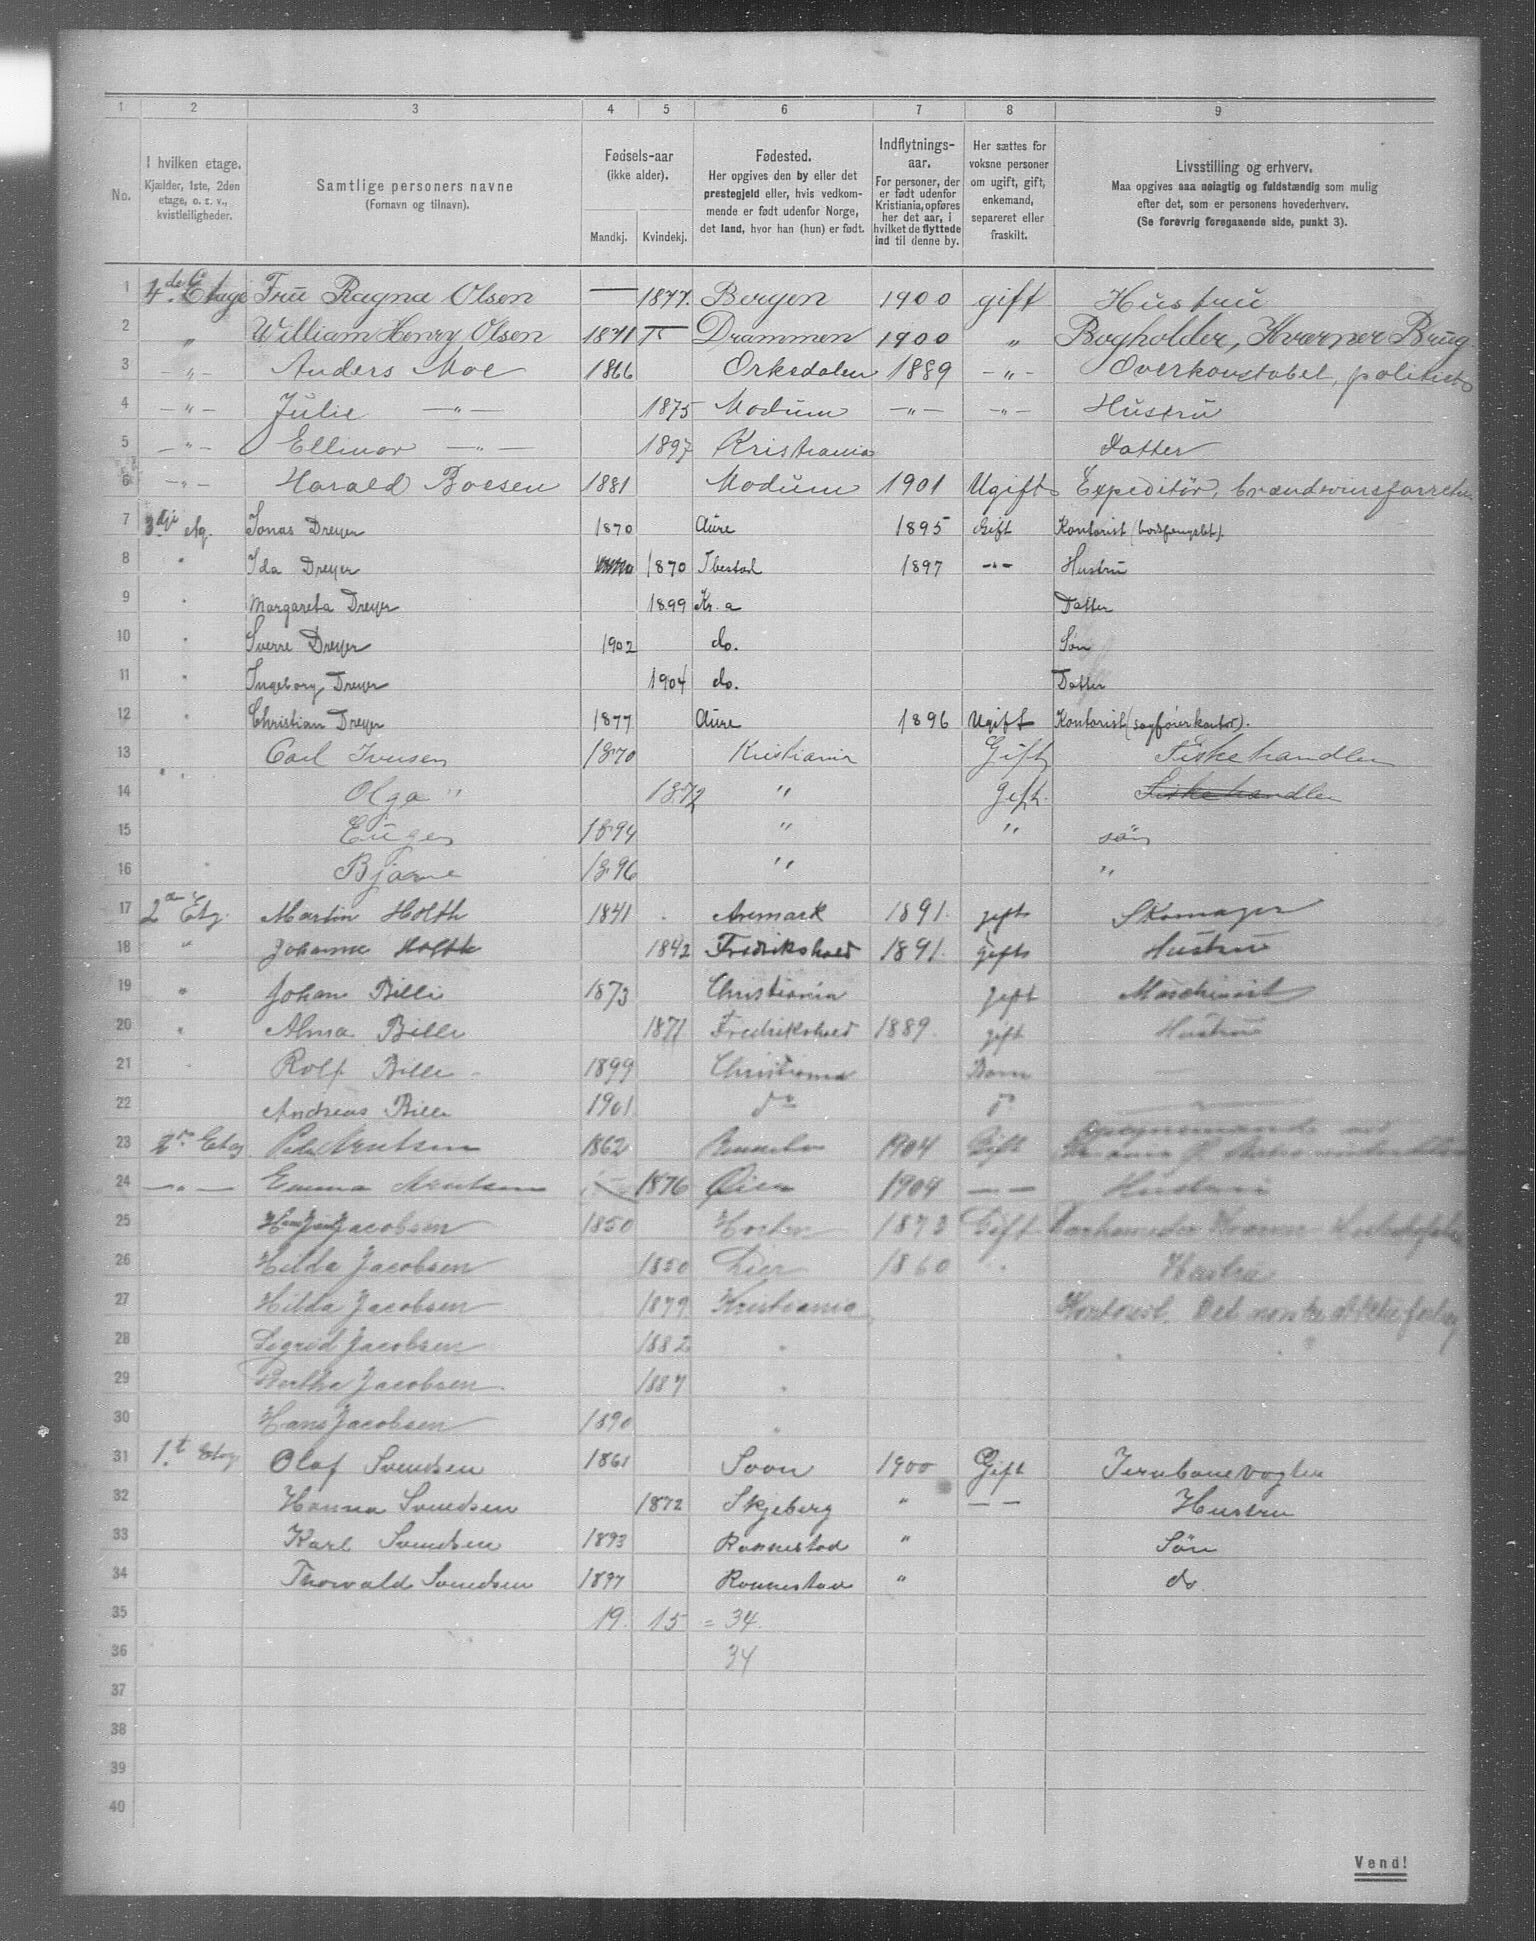 1 2 3 4 5 6 7 8 9
No.
I hvilken etage. Kjælder, 1ste, 2den etage, o. s. v., kvistleiligheder.
Samtlige personers navne (Fornavn og tilnavn).
Fødsels-aar (ikke alder). Mandkj. Kvindekj.
Fødested. Her opgives den by eller det prestegjeld eller, hvis vedkommende er født udenfor Norge, det land, hvor han (hun) er født.
Indflytnings-aar. For personer, der er født udenfor Kristiania, opføres her det aar, i hvilket de flyttede ind til denne by.
Her sættes for voksne personer om ugift, gift, enkemand, separeret eller fraskilt.
Livsstilling og erhverv. Maa opgives saa nøiagtig og fuldstændig som mulig efter det, som er personens hovederhverv. (Se forøvrig foregaaende side, punkt 3).
1 4de Etage Frü Ragna Olsen — 1877. Bergen 1900 gift Hustrü
2 " William Henry Olsen 1871 — Drammen 1900 " Bogholder, Kværner Brüg
3 —"— Anders Moe 1866 Orkedalen 1889 —"— Overkonstabel, politiets
4 —"— Julie —"— 1875 Modum —"— —"— Hustrü
5 —"— Ellinor —"— 1897 Kristiania Datter
6 —"— Harald Boesen 1881 Modum 1901 Ugift Expeditör, brændevinsforretn
7 3dje etg. Jonas Dreyer 1870 Aure 1895 Gift Kontorist (bodsfengslet).
8 " Ida Dreyer 1870 Ibestad 1897 —"— Hustru
9 " Margareta Dreyer 1899 Kr.a Datter
10 " Sverre Dreyer 1902 do. Søn
11 " Ingeborg Dreyer 1904 do. Datter
12 " Christian Dreyer 1877 Aure 1896 Ugift Kontorist (sagførerkontor).
13 Carl Iversen 1870 Kristiania Gift Fiskehandler
14 Olga " 1872 " Gift. Fiskehandler
15 Eugen 1894 " " søn
16 Bjarne 1896 " "
17 2en Etg. Martin Holth 1841 Aremark 1891. gift Skomager
18 " Johanne Holth 1842 Fredrikshald 1891. gift Hustrü
19 " Johan Bille 1873 Christiania gift Maschinist
20 " Alma Bille 1871 Fredrikshald 1889. gift Hustrü
21 Rolf Bille 1899 Christiania Barn
22 Andreas Bille 1901 do do
23 2en Etg Knutsen 1862 1904 Gift
24 —"— Emma Knutsen 1876 1904 — — Hustru
25 Jacobsen 1850 Horten 1873 Gift
26 Hilda Jacobsen 1850 Lier 1860 " Hustru
27 Hilda Jacobsen 1879 Kristiania Kontorist. Det norske aktieforlag
28 Sigrid Jacobsen 1882 "
29 Bertha Jacobsen 1887 "
30 Hans Jacobsen 1890 "
31 1.st Etg Olaf Svendsen 1861 Soon 1900 Gift Jernbanevogter
32 Hanna Svendsen 1872 Skjeberg " — — Hustru
33 Karl Svendsen 1893 Rannestad " Søn
34 Thorvald Svendsen 1897 Rannestad " do.
35 19. 15 = 34.
36 34
37
38
39
40
Vend!